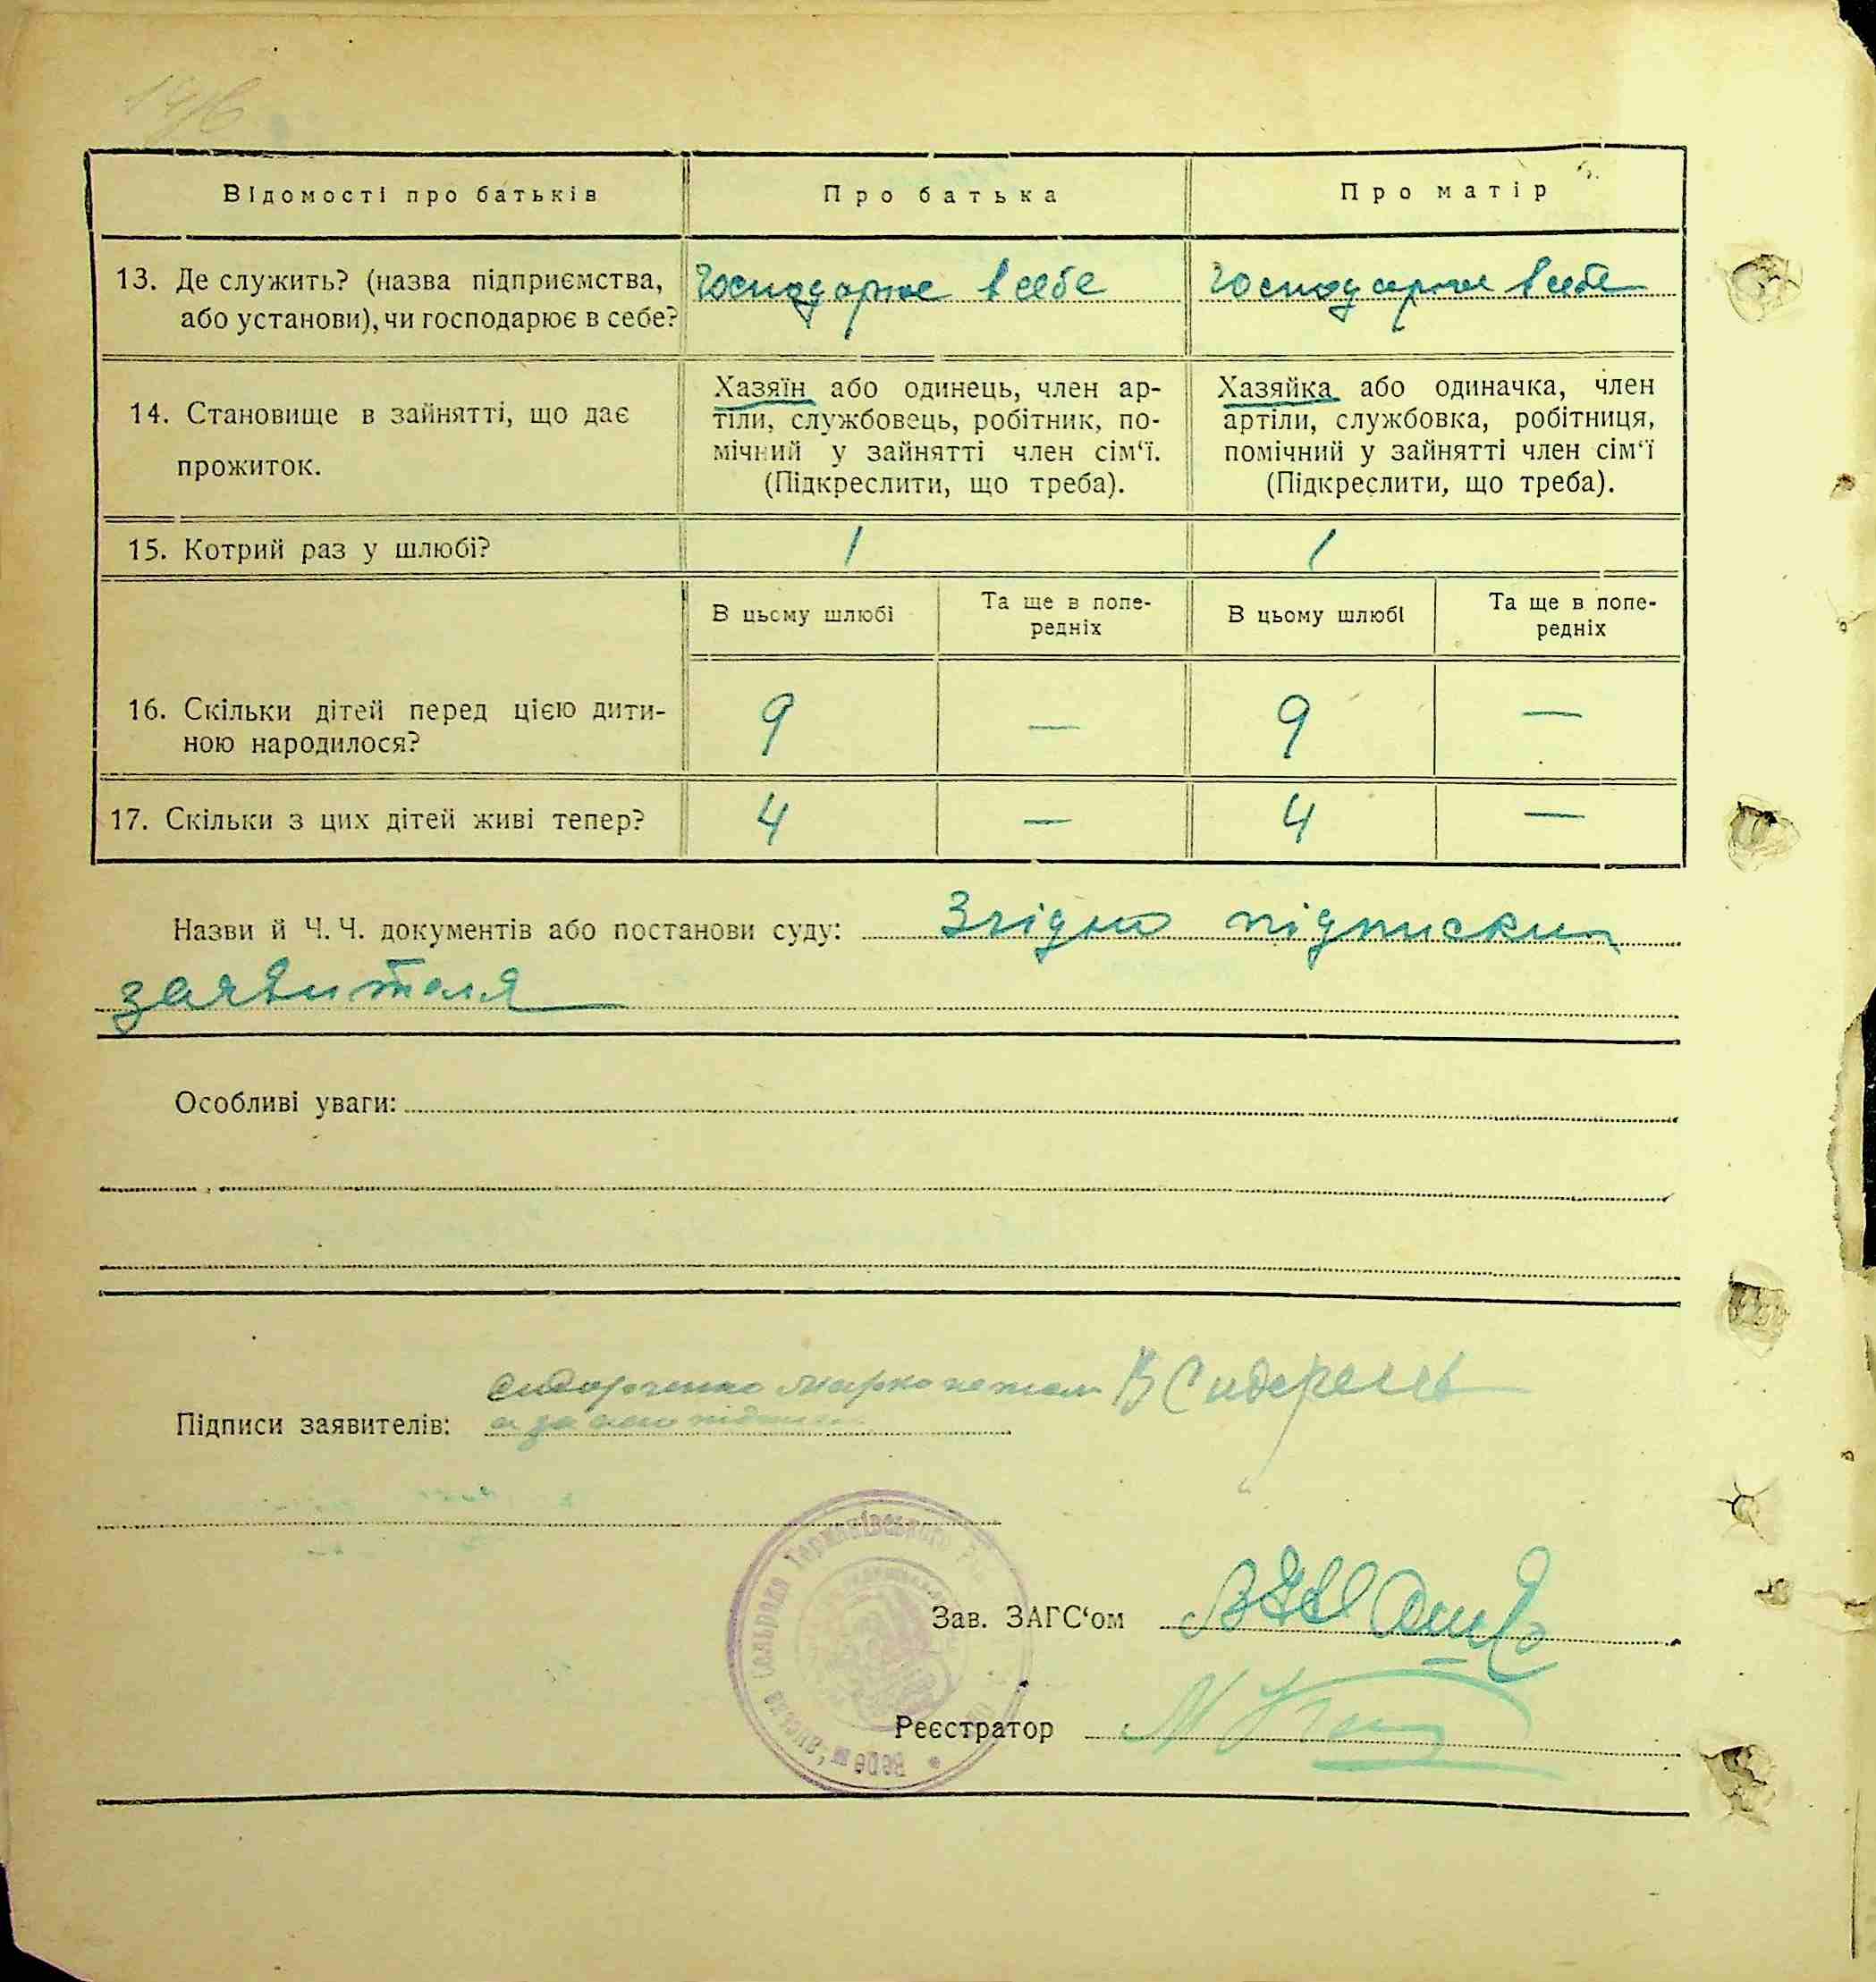 Відомості про батьків
Про батька
Про матір
13. Де служить? (назва підприємства,
або установи), чи господарює в себе?
Господарює в себе
Господарює в себе
14. Становище в зайнятті, що дає
прожиток.
Хазяїн або одинець, член ар-
тіли, службовець, робітник, по-
мічний у зайнятті член сім‘ї.
(Підкреслити, що треба).
Хазяйка або одиначка, член
артіли, службовка, робітниця,
помічний у зайнятті член сім‘ї
(Підкреслити, що треба).
15. Котрий раз у шлюбі?
1
1
В цьому шлюбі
Та ще в попе-
редніх
В цьому шлюбі
Та ще в попе-
редніх
16. Скільки дітей перед цією дити-
ною народилося?
9
—
9
—
17. Скільки з цих дітей живі тепер?
4
—
4
—
Назви й Ч. Ч. документів або постанови суду: Згідно підписки
заявителя
Особливі уваги:
Сидорченко Марко
Підписи заявителів: а за його
Зав. ЗАГС‘ом
Реєстратор